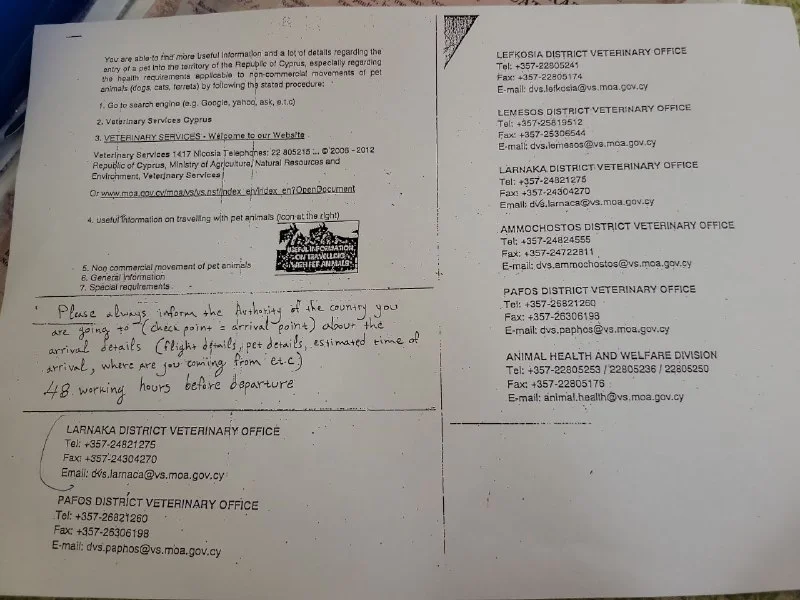 You are able to find more useful information and a lot of details regarding the
entry of a pet into the territory of the Republic of Cyprus, especially regarding
the health requirements applicable to non-commercial movements of pet
animals (dogs, cats, ferrets) by following the stated procedure:
1. Go to search engine (e.g. Google, yahoo, ask, e.t.c)
2. Veterinary Services Cyprus
3. VETERINARY SERVICES - Welcome to our Website
Veterinary Services 1417 Nicosia Telephones: 22 805216 ... © 2006 - 2012
Republic of Cyprus, Ministry of Agriculture, Natural Resources and
Environment, Veterinary Services
Or www.moa.gov.cy/moa/vs/vs.nsf/index_en/index_en?OpenDocument
4. useful information on travelling with pet animals (icon at the right)
USEFUL INFORMATION
ON TRAVELLING
WITH PET ANIMALS
5. Non commercial movement of pet animals
6. General information
7. Special requirements
Please always inform the Authority of the country you
are going to (check point = arrival point) about the
arrival details (flight details, pet details, estimated time of
arrival, where are you coming from etc)
48 working hours before departure
LARNAKA DISTRICT VETERINARY OFFICE
Tel: +357-24821275
Fax: +357-24304270
Email: dvs.larnaca@vs.moa.gov.cy
PAFOS DISTRICT VETERINARY OFFICE
Tel: +357-26821260
Fax: +357-26306198
E-mail: dvs.paphos@vs.moa.gov.cy
LEFKOSIA DISTRICT VETERINARY OFFICE
Tel: +357-22805241
Fax: +357-22805174
E-mail: dvs.lefkosia@vs.moa.gov.cy
LEMESOS DISTRICT VETERINARY OFFICE
Tel: +357-25819512
Fax: +357-25306544
E-mail: dvs.lemesos@vs.moa.gov.cy
LARNAKA DISTRICT VETERINARY OFFICE
Tel: +357-24821275
Fax: +357-24304270
Email: dvs.larnaca@vs.moa.gov.cy
AMMOCHOSTOS DISTRICT VETERINARY OFFICE
Tel: +357-24824555
Fax: +357-24722811
E-mail: dvs.ammochostos@vs.moa.gov.cy
PAFOS DISTRICT VETERINARY OFFICE
Tel: +357-26821260
Fax: +357-26306198
E-mail: dvs.paphos@vs.moa.gov.cy
ANIMAL HEALTH AND WELFARE DIVISION
Tel: +357-22805253 / 22805236 / 22805250
Fax: +357-22805176
E-mail: animal.health@vs.moa.gov.cy